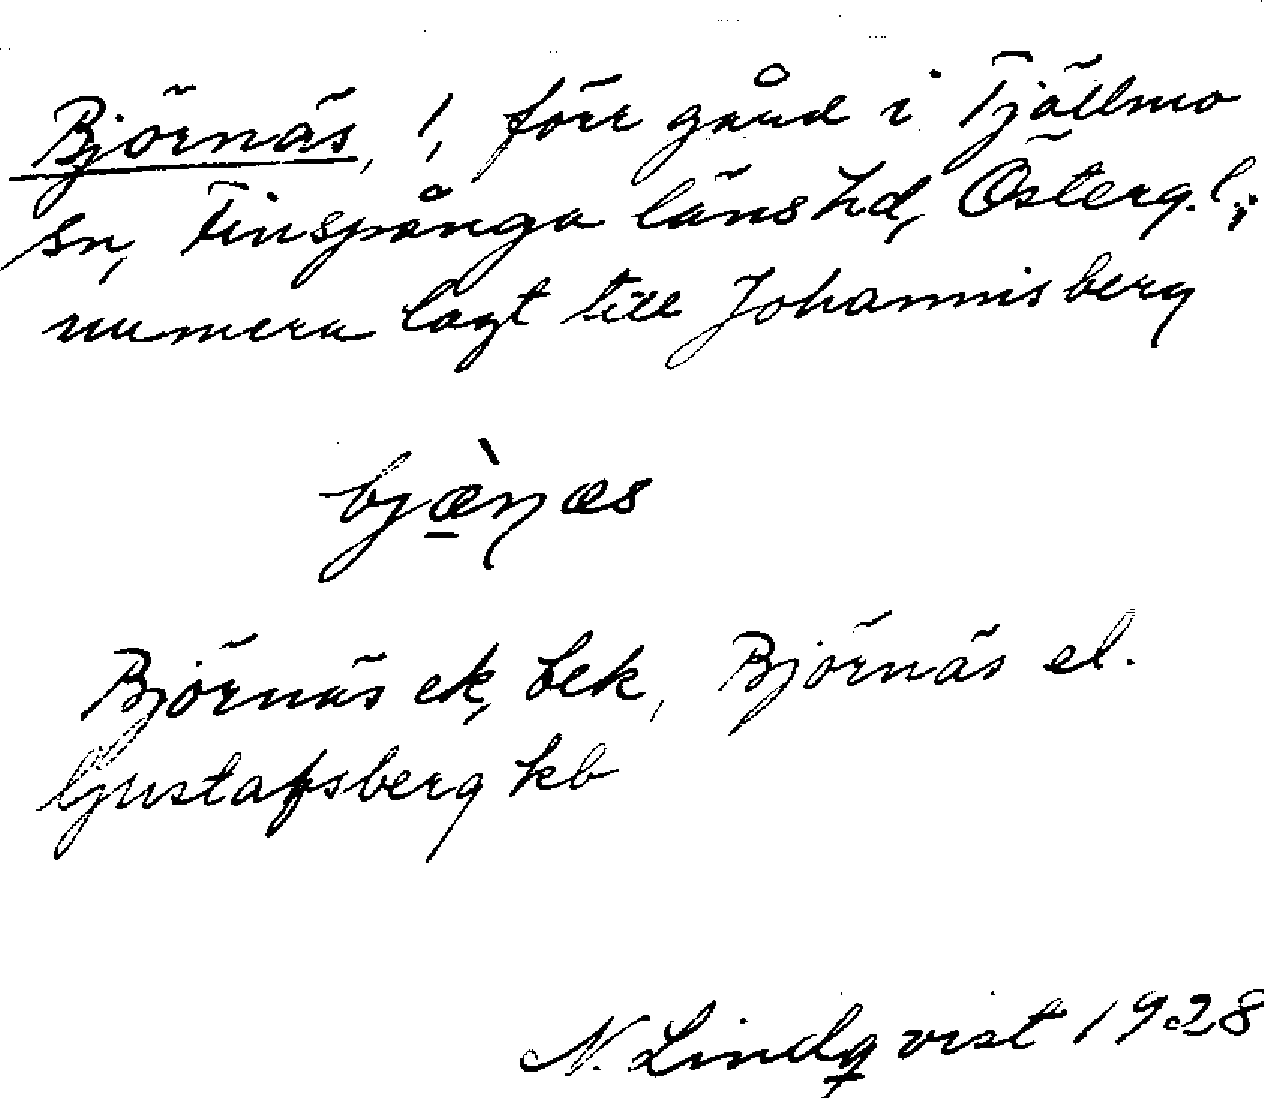 Björnäs, 1, förr gård i Tjällmo
sn, Finspånga läns hd, Österg. l;
numera lagt till Johannisberg
bjæ̀ṇæs
Björnäs ek, bek, Björnäs el.
Gustafsberg kb
N. Lindqvist 1928